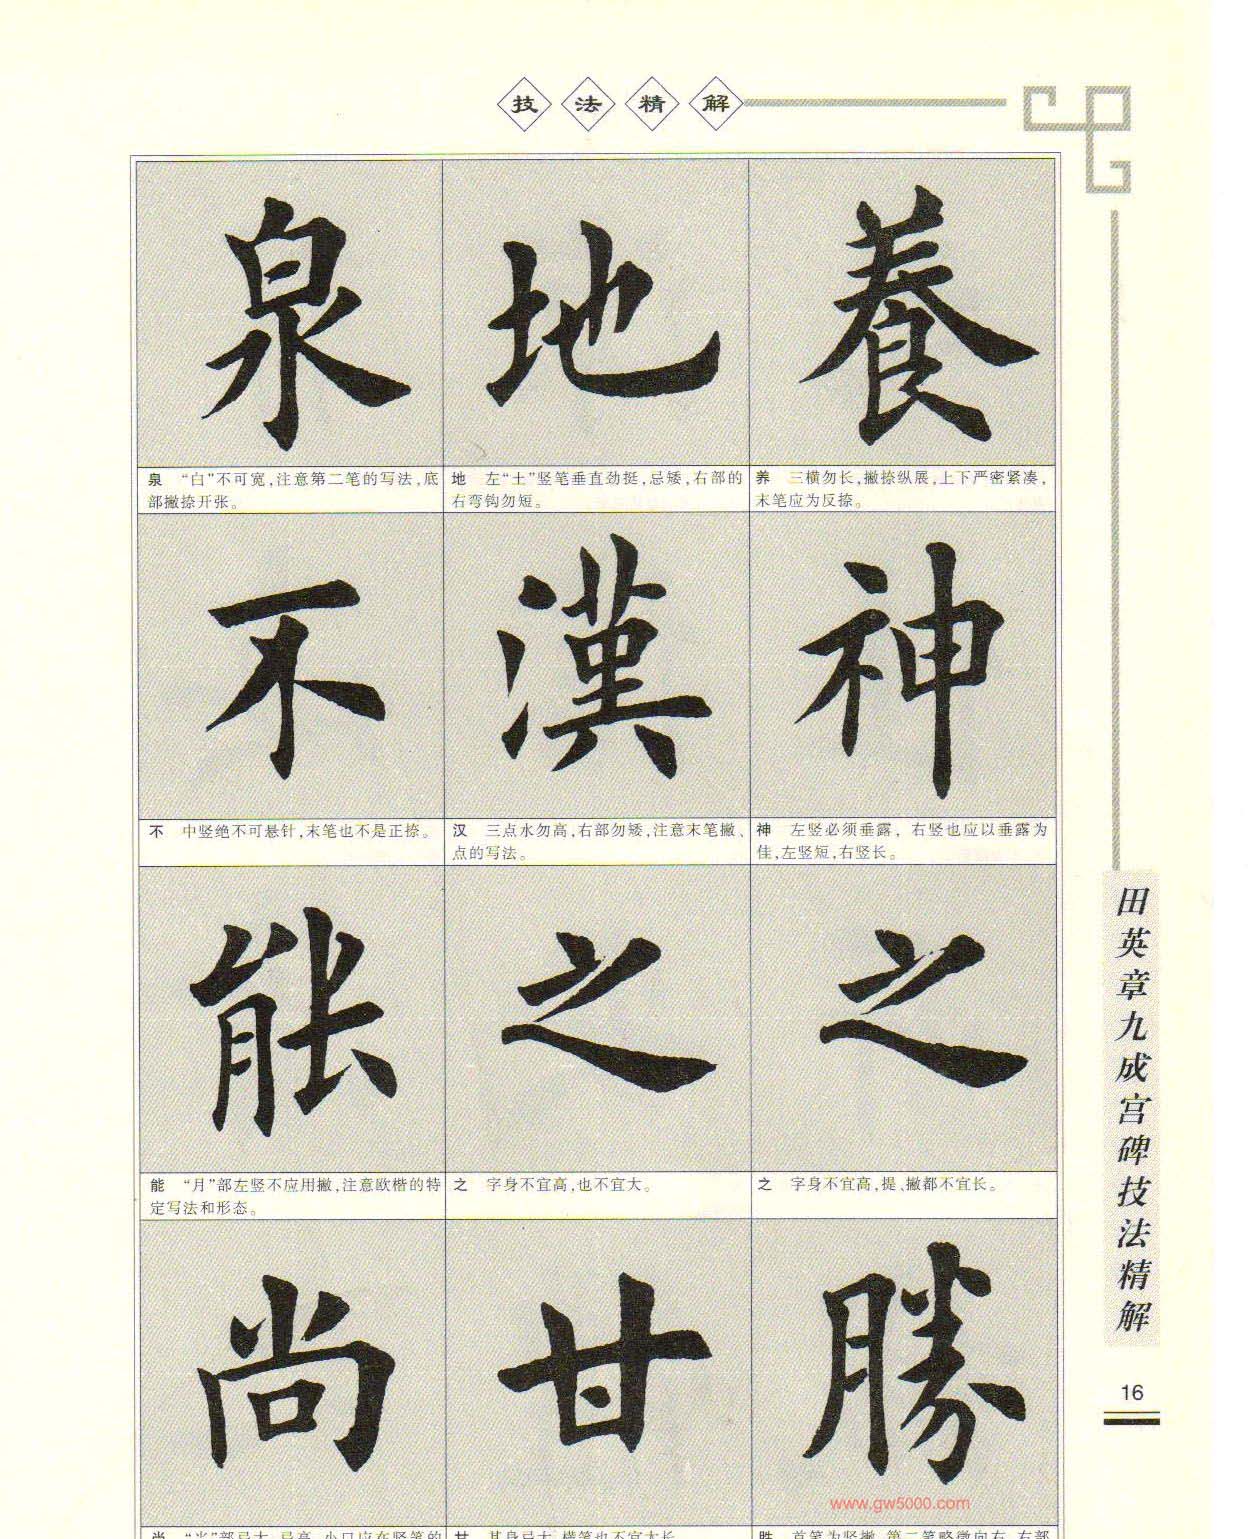 技法精解
泉 地 養
泉 “白”不可宽,注意第二笔的写法,底
部撇捺开张。
地 左“土”竖笔垂直劲挺,忌矮,右部的
右弯钩勿短。
养 三横勿长,撇捺纵展,上下严密紧凑,
末笔应为反捺。
不 漢 神
不 中竖绝不可悬针,末笔也不是正捺。
汉 三点水勿高,右部勿矮,注意末笔撇、
点的写法。
神 左竖必须垂露,右竖也应以垂露为
佳,左竖短,右竖长。
能 之 之
能 “月”部左竖不应用撇,注意欧楷的特
定写法和形态。
之 字身不宜高,也不宜大。
之 字身不宜高,提、撇都不宜长。
尚 甘 勝
www.gw5000.com
田英章九成宫碑技法精解
16